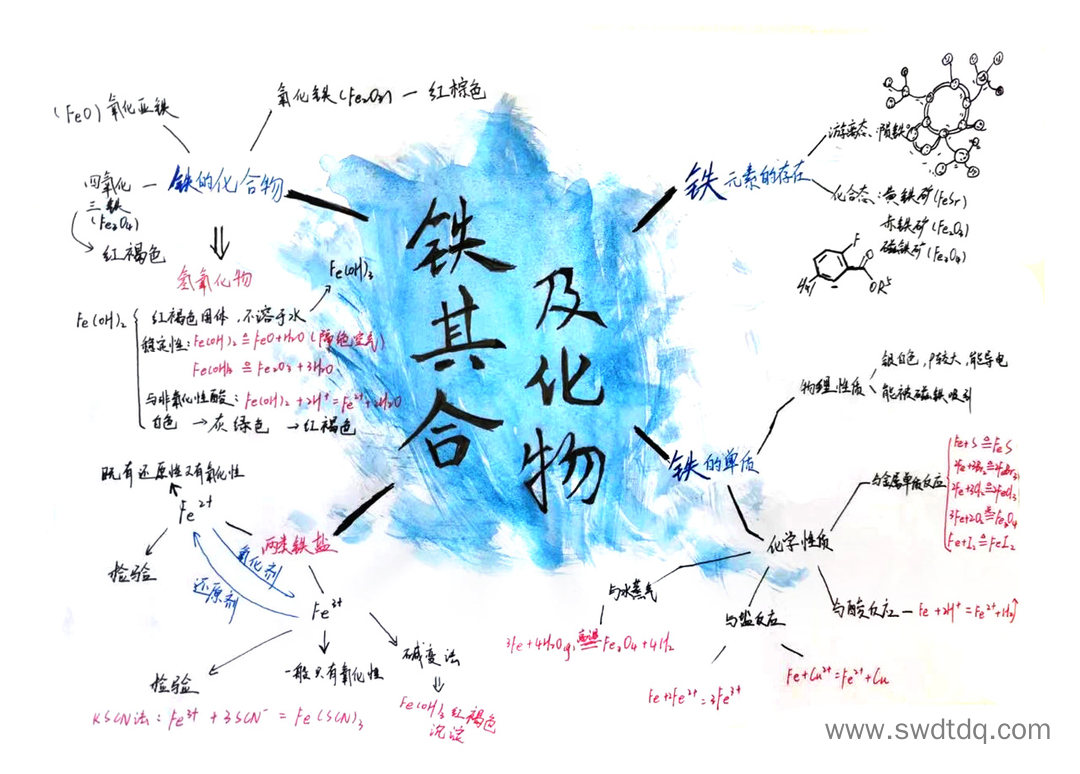 铁及其化合物
铁的化合物
(FeO)氧化亚铁
氧化铁(Fe₂O₃) — 红棕色
四氧化
三铁
(Fe₃O₄)
红褐色
氢氧化物
Fe(OH)₃
Fe(OH)₂
红褐色固体,不溶于水
稳定性:Fe(OH)₂ ≙ FeO+H₂O (隔绝空气)
Fe(OH)₃ ≙ Fe₂O₃+3H₂O
与非氧化性酸:Fe(OH)₂+2H⁺=Fe²⁺+2H₂O
白色 → 灰绿色 → 红褐色
两类铁盐
既有还原性又有氧化性
Fe²⁺
检验
氧化剂
还原剂
Fe³⁺
检验
KSCN法:Fe³⁺ + 3SCN⁻ = Fe(SCN)₃
一般只有氧化性
碱变法
Fe(OH)₃红褐色
沉淀
铁元素的存在
游离态:陨铁
化合态:黄铁矿(FeSr)
赤铁矿(Fe₂O₃)
磁铁矿(Fe₃O₄)
F
O
OR⁵
铁的单质
物理性质
银白色,ρ较大,能导电
能被磁铁吸引
化学性质
与金属单质反应
Fe+S ≙ FeS
2Fe+3Cl₂ ≙ 2FeCl₃
Fe+I₂ ≙ FeI₂
与酸反应 — Fe+2H⁺=Fe²⁺+H₂↑
与盐反应
Fe+Cu²⁺=Fe²⁺+Cu
Fe+2Fe²⁺=3Fe³⁺
与水蒸气
3Fe+4H₂O(g) 高温 Fe₃O₄+4H₂
www.swdtdq.com